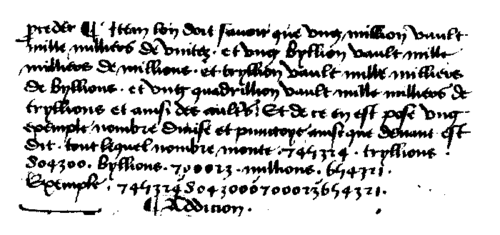 preder ¶ Item lon doit savoir que ung million vault
mille milliers de unitez · et ung byllion vault mille
milliers de millions · et tryllion vault mille milliers
de byllions · et ung quadrillion vault mille milliers de
tryllions et ainsi des aultres · Et de ce en est pose ung
exemple nombre divise et punctoye ainsi que devant est
dit · tout lequel nombre monte · 745324 · tryllions ·
804300 · byllions · 700023 · millions · 654321 ·
Exemple · 7453248043000700023654321 ·
¶ Addicion ·